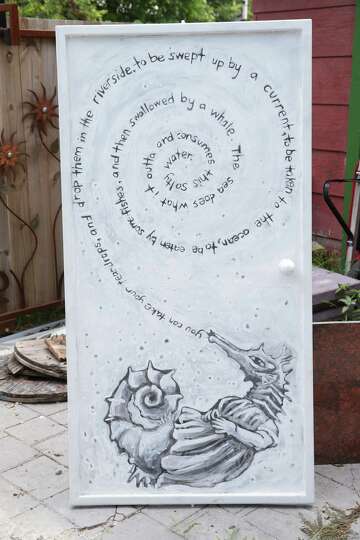 you can take your teardrops, and drop them in the riverside, to be swept up by a current, to be taken to the ocean, to be eaten by some fishes, and then swallowed by a whale. The sea does what it outta and consumes this salty water.